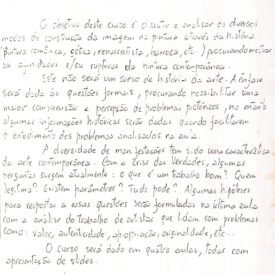 O objetivo deste curso é discutir e analisar os diversos
modos de construção da imagem na pintura através da história
(pintura românica, gótica, renascentista, barroca, etc..) procurando mostrar
as afinidades e/ou rupturas da pintura contemporânea.
Este não será um curso de história da arte. A ênfase
será dada às questões formais, procurando possibilitar uma
maior compreensão e percepção de problemas pictóricos, no entanto
algumas informações históricas serão dadas quando facilitarem
o entendimento dos problemas analisados na aula.
A diversidade de manifestações tem sido uma característica
da arte contemporânea. Com a crise das verdades, algumas
perguntas surgem atualmente: o que é um trabalho bom? Quem
legitima? Existem parâmetros? Tudo pode? Algumas hipóteses
para respostas a essas questões serão formuladas na última aula
com a análise do trabalho de artistas que lidam com problemas
como: valor, autenticidade, apropriação, originalidade, etc...
O curso será dado em quatro aulas, todas com
apresentação de slides.